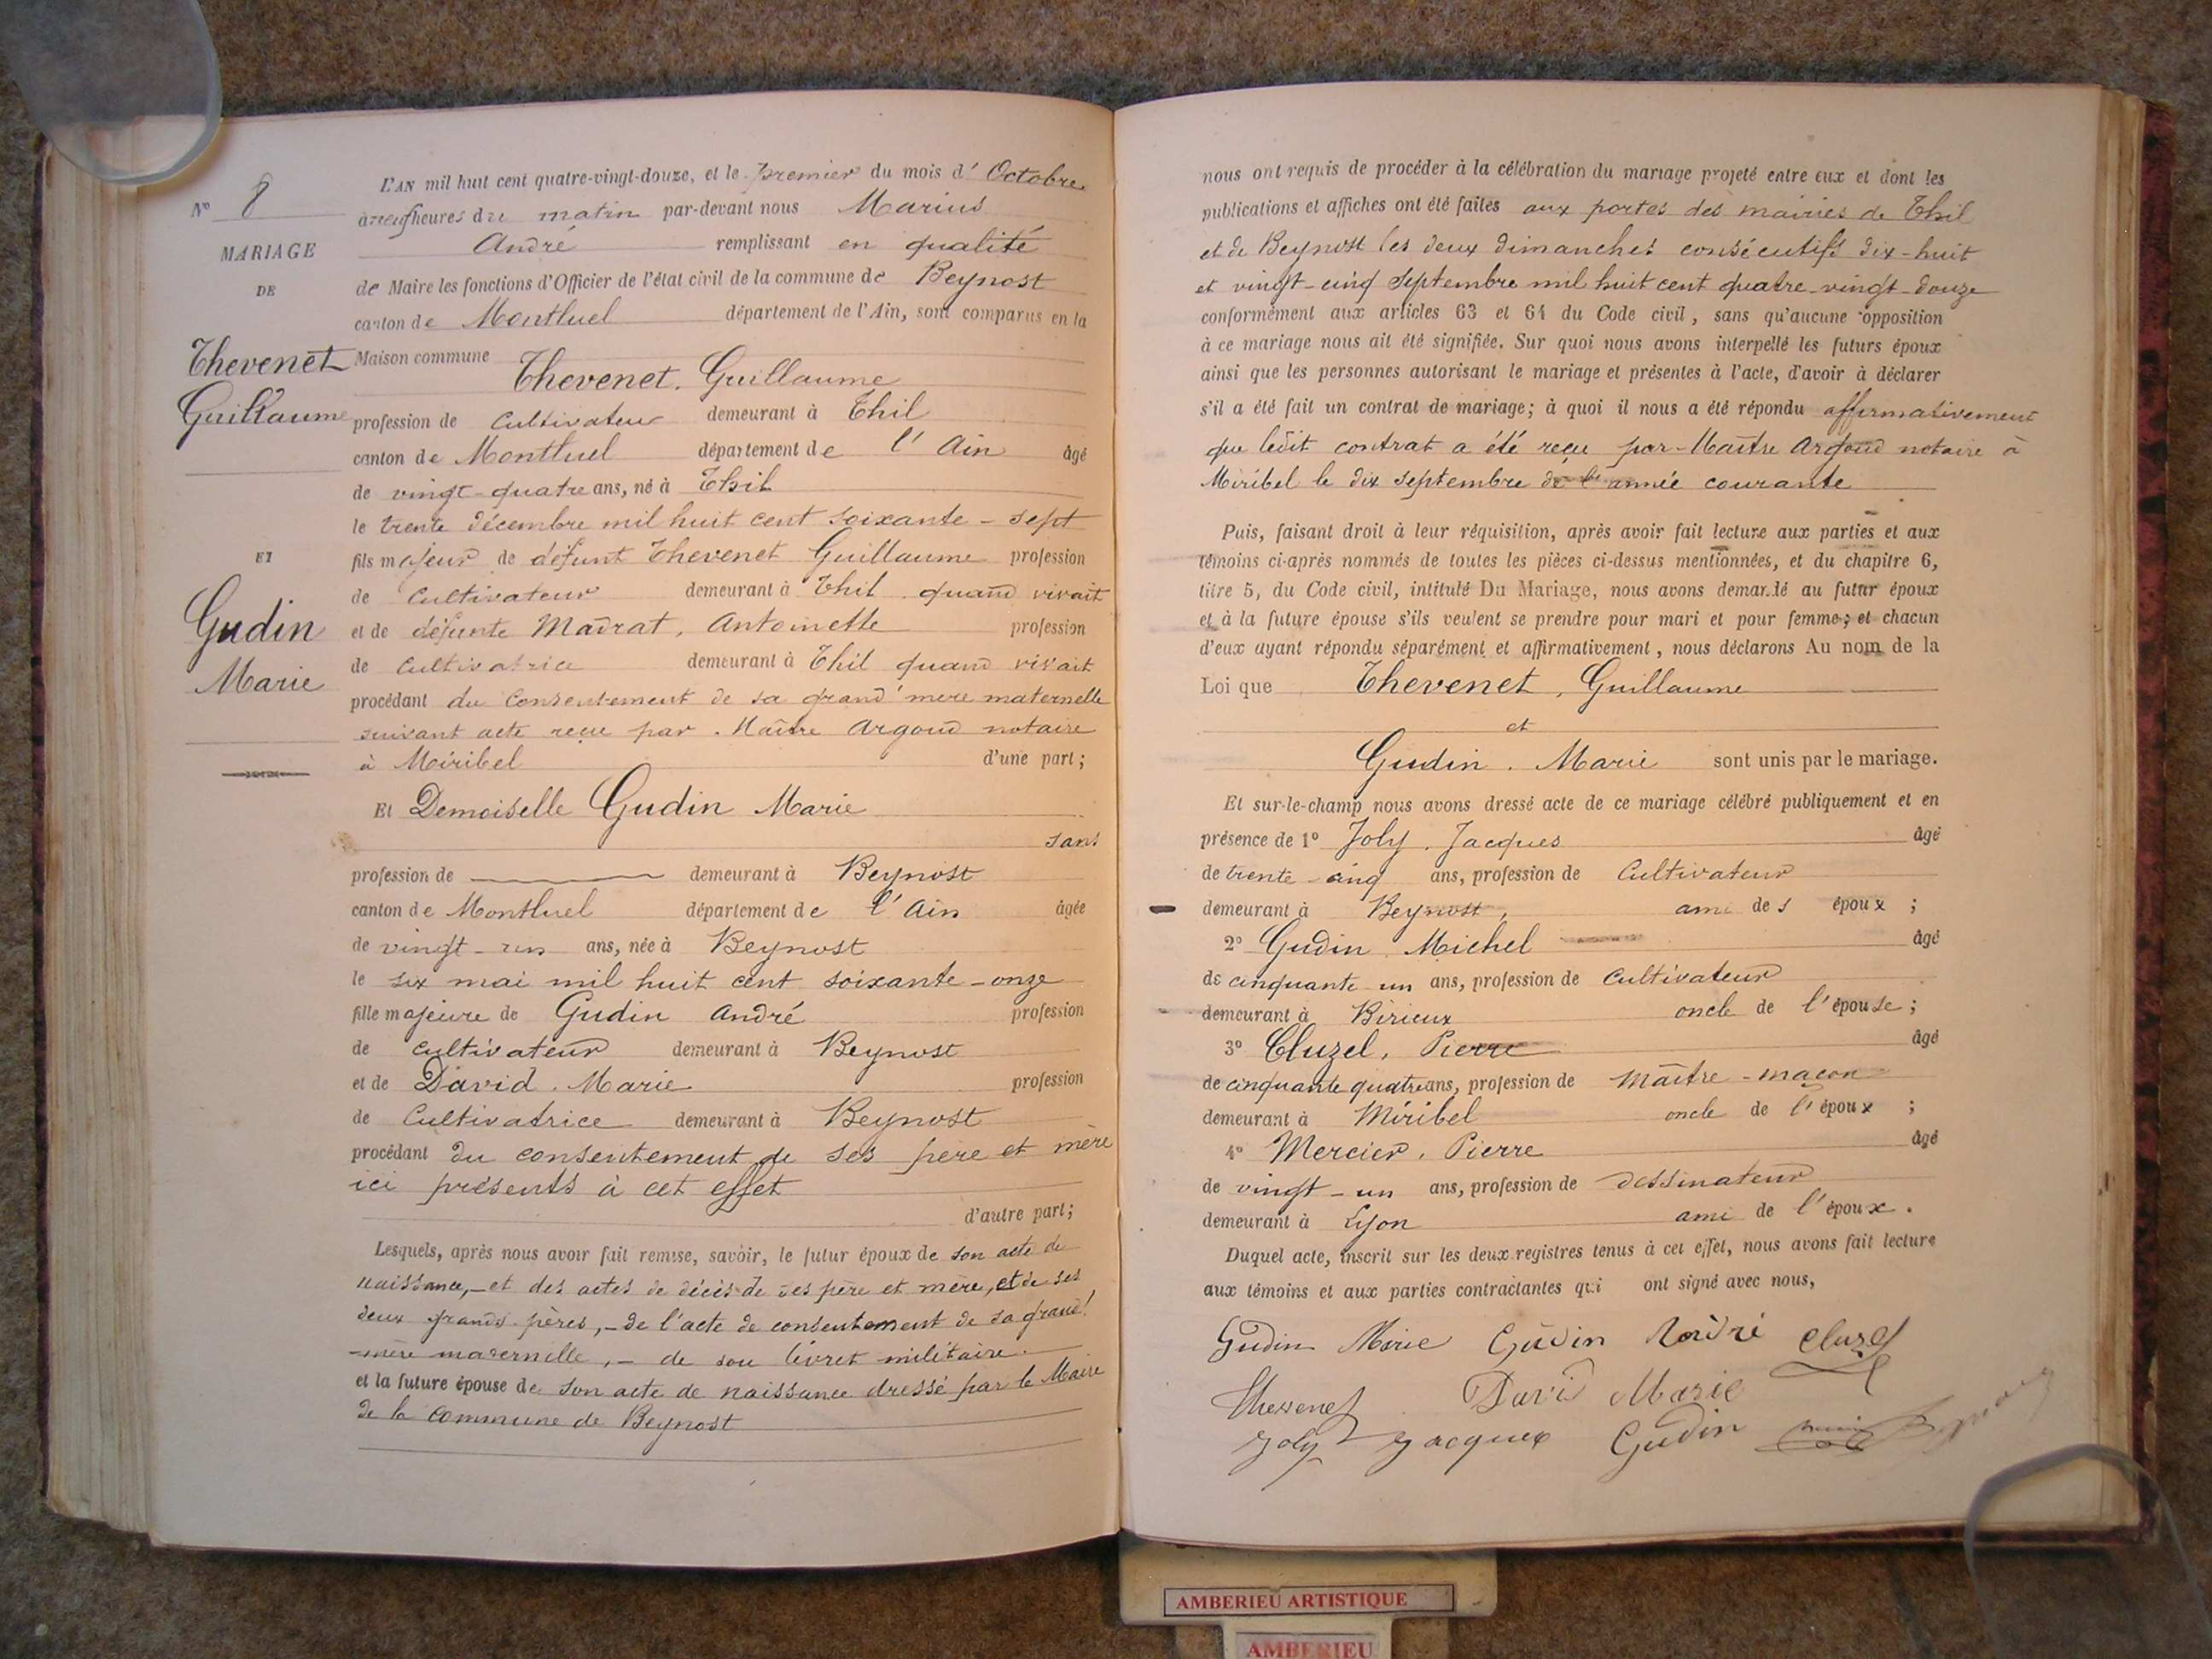 N° 8
MARIAGE
DE
Thevenet
Guillaume
ET
Gudin
Marie
L'AN mil huit cent quatre-vingt-douze, et le premier du mois d' Octobre
à neuf heures du matin par-devant nous Marius
André remplissant en qualité
de Maire les fonctions d'Officier de l'état civil de la commune de Beynost
canton de Montluel département de l'Ain, sont comparus en la
Maison commune Thevenet, Guillaume
profession de Cultivateur demeurant à Thil
canton de Montluel département de l'Ain âgé
de vingt-quatre ans, né à Thil
le trente décembre mil huit cent soixante-sept
fils majeur de défunt Thevenet Guillaume profession
de Cultivateur demeurant à Thil quand vivait
et de défunte Madrat, Antoinette profession
de Cultivatrice demeurant à Thil quand vivait
procédant du Consentement de sa grand'mere maternelle
suivant acte reçu par Maître Argoud notaire
à Miribel d'une part;
Et Demoiselle Gudin Marie
sans
profession de demeurant à Beynost
canton de Montluel département de l'Ain âgée
de vingt-un ans, née à Beynost
le six mai mil huit cent soixante-onze
fille majeure de Gudin André profession
de cultivateur demeurant à Beynost
et de David Marie profession
de Cultivatrice demeurant à Beynost
procédant du consentement de ses père et mère
ici présents à cet effet
d'autre part;
Lesquels, après nous avoir fait remise, savoir, le futur époux de son acte de
naissance, - et des actes de décès de ses père et mère, et de ses
deux grands-pères, - de l'acte de consentement de sa grand'
mère maternelle, - de son livret militaire.
et la future épouse de son acte de naissance dressé par le Maire
de la commune de Beynost
nous ont requis de procéder à la célébration du mariage projeté entre eux et dont les
publications et affiches ont été faites aux portes des mairies de Thil
et de Beynost les deux dimanches consécutifs dix-huit
et vingt-cinq Septembre mil huit cent quatre-vingt-douze
conformément aux articles 63 et 64 du Code civil, sans qu'aucune opposition
à ce mariage nous ait été signifiée. Sur quoi nous avons interpellé les futurs époux
ainsi que les personnes autorisant le mariage et présentes à l'acte, d'avoir à déclarer
s'il a été fait un contrat de mariage; à quoi il nous a été répondu affirmativement
que ledit contrat a été reçu par Maître Argoud notaire à
Miribel le dix septembre de l'année courante
Puis, faisant droit à leur réquisition, après avoir fait lecture aux parties et aux
témoins ci-après nommés de toutes les pièces ci-dessus mentionnées, et du chapitre 6,
titre 5, du Code civil, intitulé Du Mariage, nous avons demandé au futur époux
et à la future épouse s'ils veulent se prendre pour mari et pour femme; et chacun
d'eux ayant répondu séparément et affirmativement, nous déclarons Au nom de la
Loi que Thevenet, Guillaume
et
Gudin. Marie sont unis par le mariage.
Et sur-le-champ nous avons dressé acte de ce mariage célébré publiquement et en
présence de 1° Joly, Jacques âgé
de trente-cinq ans, profession de Cultivateur
demeurant à Beynost, ami des époux;
2° Gudin Michel âgé
de cinquante un ans, profession de Cultivateur
demeurant à Birieux oncle de l'épouse;
3° Cluzel, Pierre âgé
de cinquante quatre ans, profession de Maître-maçon
demeurant à Miribel oncle de l'époux;
4° Mercier, Pierre âgé
de vingt-un ans, profession de dessinateur
demeurant à Lyon ami de l'époux.
Duquel acte, inscrit sur les deux registres tenus à cet effet, nous avons fait lecture
aux témoins et aux parties contractantes qui ont signé avec nous,
Gudin Marie Gudin André Cluzel
Thevenet Davi Marie
Joly Jacques Gudin
AMBERIEU ARTISTIQUE
AMBERIEU